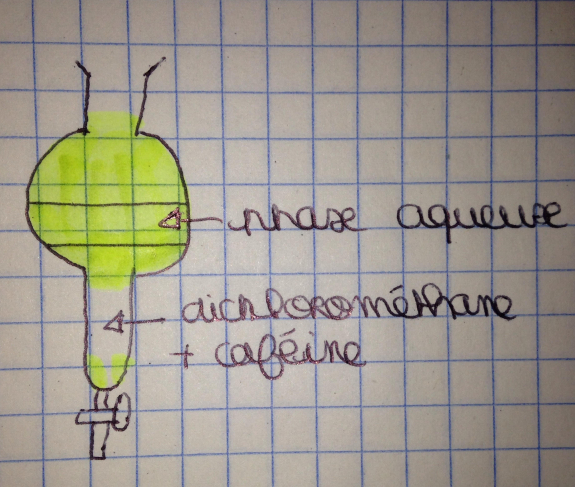 phase aqueuse
dichlorométhane
+ caféine